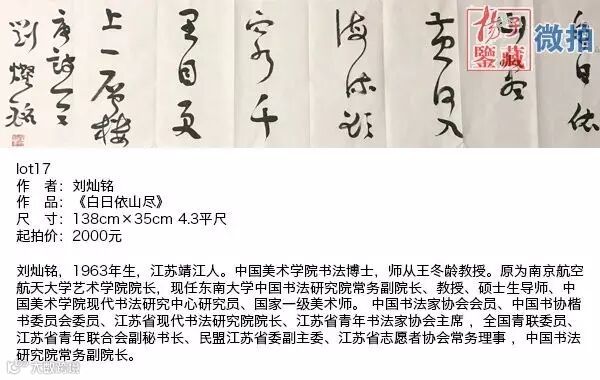 白日依
山盡
黄河入
海流欲
窮千
里目更
上一層樓
唐詩一首
劉燦銘
揚子
鑒藏
微拍
lot17
作 者：刘灿铭
作 品：《白日依山尽》
尺 寸：138cm×35cm 4.3平尺
起拍价：2000元
刘灿铭，1963年生，江苏靖江人。中国美术学院书法博士，师从王冬龄教授。原为南京航空
航天大学艺术学院院长，现任东南大学中国书法研究院常务副院长、教授、硕士生导师、中
国美术学院现代书法研究中心研究员、国家一级美术师。 中国书法家协会会员、中国书协楷
书委员会委员、江苏省现代书法研究院院长、江苏省青年书法家协会主席 ，全国青联委员、
江苏省青年联合会副秘书长、民盟江苏省委副主委、江苏省志愿者协会常务理事 ，中国书法
研究院常务副院长。